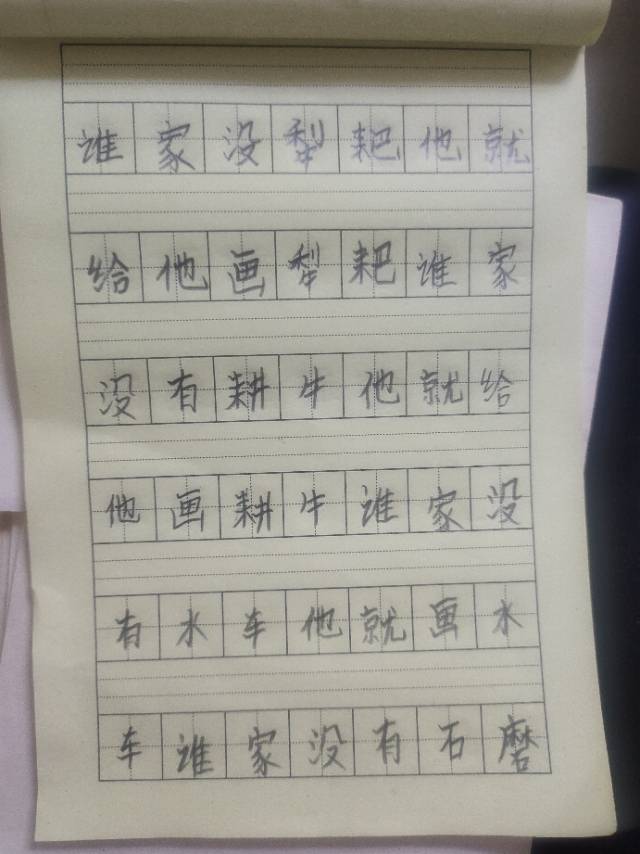 谁家没犁耙他就
给他画犁耙谁家
没有耕牛他就给
他画耕牛谁家没
有水车他就画水
车谁家没有石磨